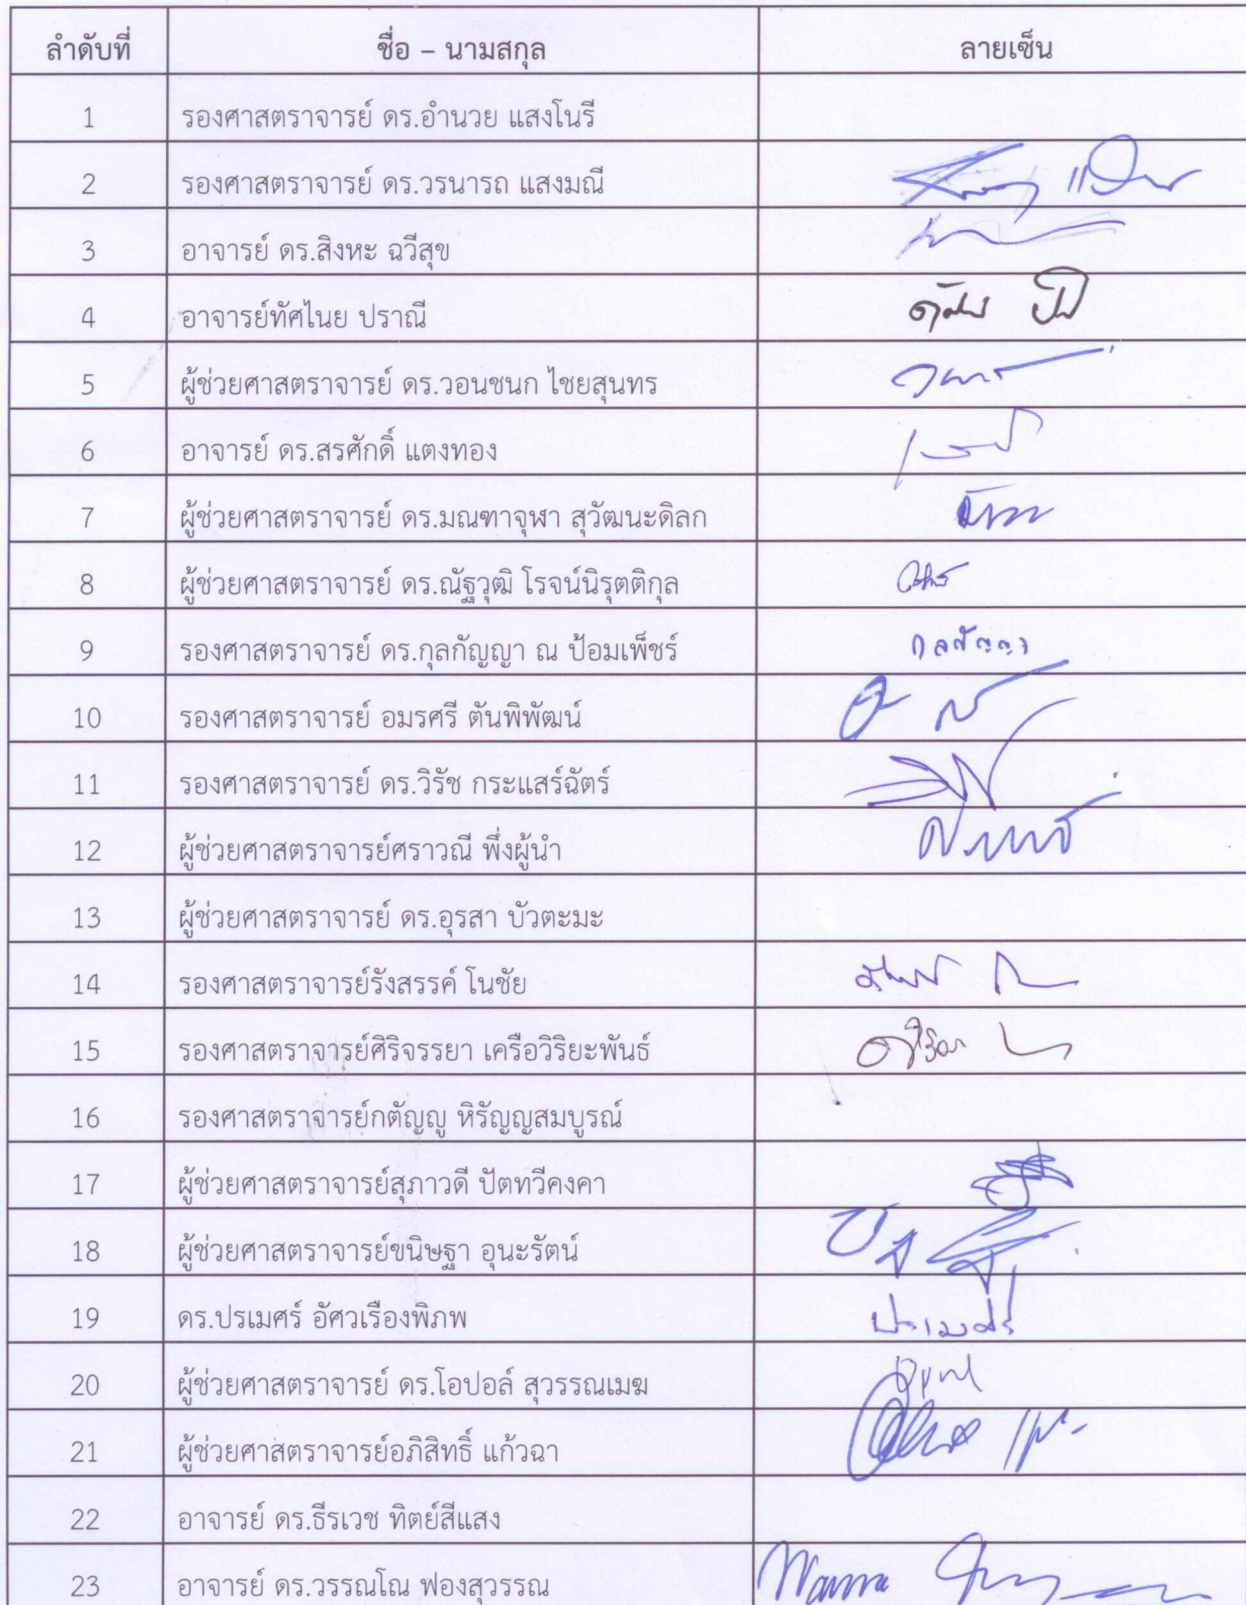 ลำดับที่ ชื่อ – นามสกุล ลายเซ็น
1 รองศาสตราจารย์ ดร.อำนวย แสงโนรี
2 รองศาสตราจารย์ ดร.วรนารถ แสงมณี
3 อาจารย์ ดร.สิงหะ ฉวีสุข
4 อาจารย์ทัศไนย ปราณี
5 ผู้ช่วยศาสตราจารย์ ดร.วอนชนก ไชยสุนทร
6 อาจารย์ ดร.สรศักดิ์ แตงทอง
7 ผู้ช่วยศาสตราจารย์ ดร.มณฑาจุฬา สุวัฒนะดิลก
8 ผู้ช่วยศาสตราจารย์ ดร.ณัฐวุฒิ โรจน์นิรุตติกุล
9 รองศาสตราจารย์ ดร.กุลกัญญา ณ ป้อมเพ็ชร์ กุลกัญญา
10 รองศาสตราจารย์ อมรศรี ตันพิพัฒน์
11 รองศาสตราจารย์ ดร.วิรัช กระแสร์ฉัตร์
12 ผู้ช่วยศาสตราจารย์ศราวณี พึ่งผู้นำ
13 ผู้ช่วยศาสตราจารย์ ดร.อุรสา บัวตะมะ
14 รองศาสตราจารย์รังสรรค์ โนชัย
15 รองศาสตราจารย์ศิริจรรยา เครือวิริยะพันธ์
16 รองศาสตราจารย์กตัญญู หิรัญญสมบูรณ์
17 ผู้ช่วยศาสตราจารย์สุภาวดี ปัตทวีคงคา
18 ผู้ช่วยศาสตราจารย์ขนิษฐา อุนะรัตน์
19 ดร.ปรเมศร์ อัศวเรืองพิภพ ปรเมศร์
20 ผู้ช่วยศาสตราจารย์ ดร.โอปอล์ สุวรรณเมฆ
21 ผู้ช่วยศาสตราจารย์อภิสิทธิ์ แก้วฉา
22 อาจารย์ ดร.ธีรเวช ทิตย์สีแสง
23 อาจารย์ ดร.วรรณโณ ฟองสุวรรณ